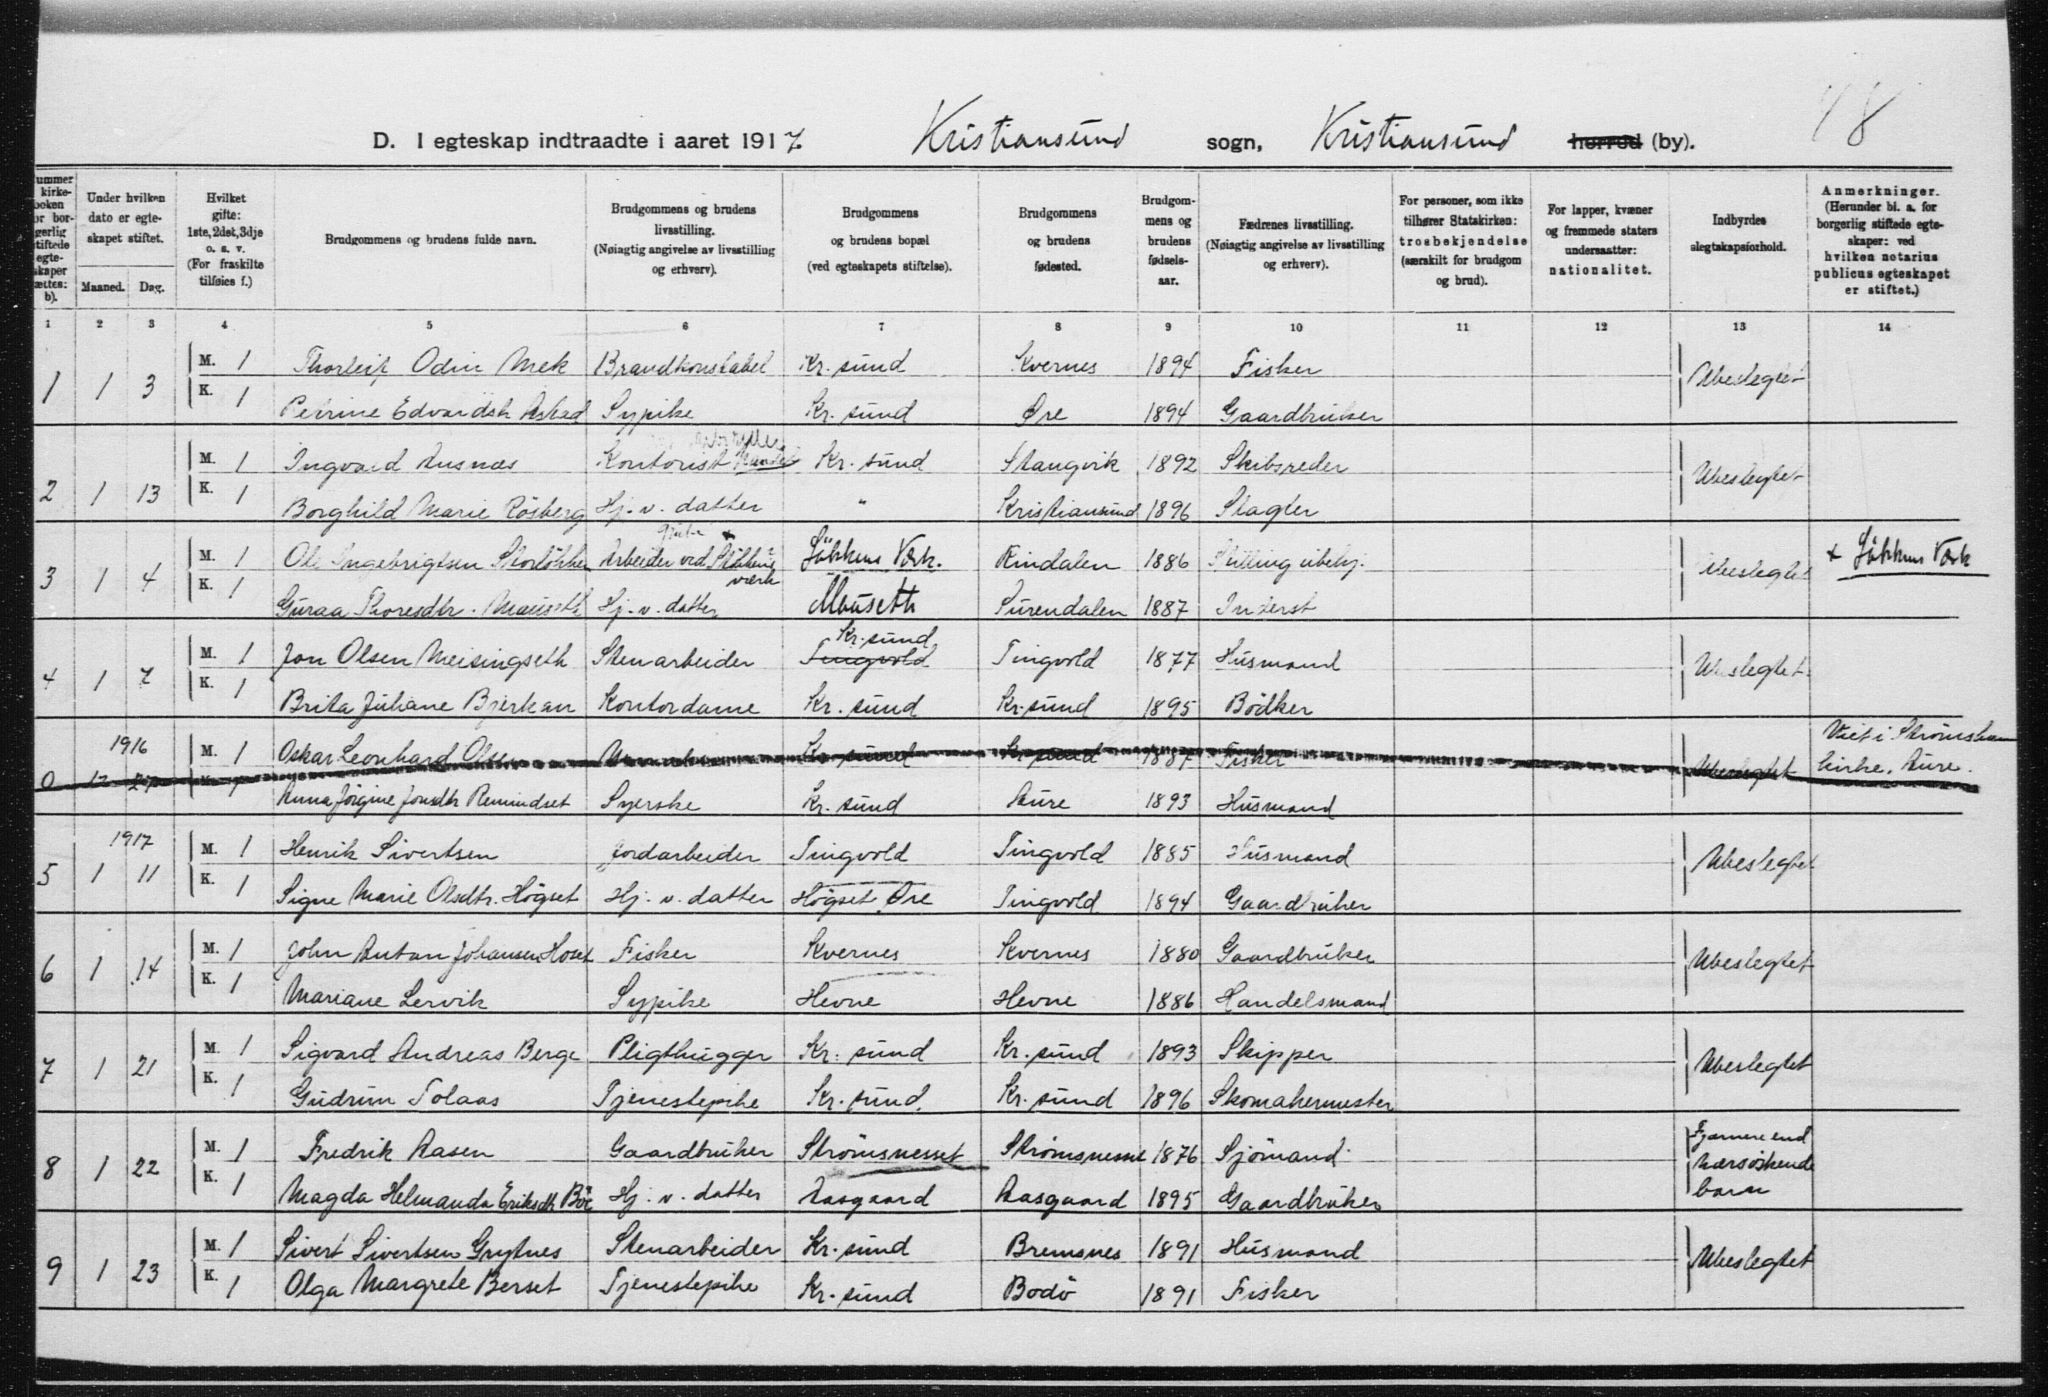 48
D. I egteskap indtraadte i aaret 1917 Kristiansund sogn, Kristiansund herred (by).
Nummer i kirkeboken for borgerlig stiftede egteskaper sættes: b).
Under hvilken dato er egteskapet stiftet.
Maaned. Dag.
Hvilket gifte: 1ste, 2det, 3dje o. s. v. (For fraskilte tilføies f.)
Brudgommens og brudens fulde navn.
Brudgommens og brudens livsstilling. (Nøiagtig angivelse av livsstilling og erhverv).
Brudgommens og brudens bopæl (ved egteskapets stiftelse).
Brudgommens og brudens fødested.
Brudgommens og brudens fødselsaar.
Fædrenes livsstilling. (Nøiagtig angivelse av livsstilling og erhverv).
For personer, som ikke tilhører Statskirken: trosbekjendelse (særskilt for brudgom og brud).
For lapper, kvæner og fremmede staters undersaatter: nationalitet.
Indbyrdes slegtskapsforhold.
Anmerkninger. (Herunder bl. a. for borgerlig stiftede egteskaper: ved hvilken notarius publicus egteskapet er stiftet.)
1 2 3 4 5 6 7 8 9 10 11 12 13 14
M. 1 Thorleif Odin Mek Brandkonstabel Kr. sund Kvernes 1894 Fisker
1 1 3 Ubeslegtet
K. 1 Petrine Edvardsdtr Kr. sund Øre 1894 Gaardbruker
Sypike
M. 1 Ingvald Ausnæs Kontorist Kr. sund Stangvik 1892 Skibsreder
2 1 13 Ubeslegtet
K. 1 Borghild Marie Rösberg Hj. v. datter " Kristiansund 1896 Slagter
Grube +
M. 1 Ole Ingebrigtsen Storlökken Arbeider ved Lökkens værk Lökkens Værk. Rindalen 1886 Stilling ubekj.
3 1 4 Ubeslegtet + Lökkens Værk
K. 1 Guraa Thoresdtr. Mauseth Hj. v. datter Mauseth Surendalen 1887 Inderst
Kr. sund
M. 1 Jon Olsen Meisingseth Stenarbeider Tingvold Tingvold 1877 Husmand
4 1 7 Ubeslegtet.
K. 1 Brita Juliane Bjerkan Kontordame Kr. sund Kr. sund 1895 Bödker
1916
M. 1 Oskar Leonhard Olsen Kr. sund Kr. sund 1887 Fisker Viet i Strömshavn
0 12 Ubeslegtet kirke, Aure.
K. 1 Anna Jörgine Jonsdtr Remindset Syerske Kr. sund Aure 1893 Husmand
1917
M. 1 Henrik Sivertsen Jordarbeider Tingvold Tingvold 1885 Husmand
5 1 11 Ubeslegtet
K. 1 Signe Marie Olsdtr. Högset Hj. v. datter Högset Øre Tingvold 1894 Gaardbruker
M. 1 John Antan Johansen Hoset Fisker Kvernes Kvernes 1880 Gaardbruker
6 1 14 Ubeslegtet
K. 1 Mariane Lervik Sypike Hevne Hevne 1886 Handelsmand
M. 1 Sigvard Andreas Berge Pligthugger Kr. sund Kr. sund 1893 Skipper
7 1 21 Ubeslegtet
K. 1 Gudrun Tolaas Tjenestepike Kr. sund. Kr. sund 1896 Skomakermester
M. 1 Fredrik Aasen Gaardbruker Strömsnesset Strömsnesset 1876 Sjömand
8 1 22 Fjærnere end nærsöskende barn
K. 1 Magda Helmanda Eriksdtr Böe Hj. v. datter Aasgaard Aasgaard 1895 Gaardbruker
M. 1 Sivert Sivertsen Grytnes Stenarbeider Kr. sund Bremsnes 1891 Husmand
9 1 23 Ubeslegtet
K. 1 Olga Margrete Berset Tjenestepike Kr. sund Bodö 1891 Fisker